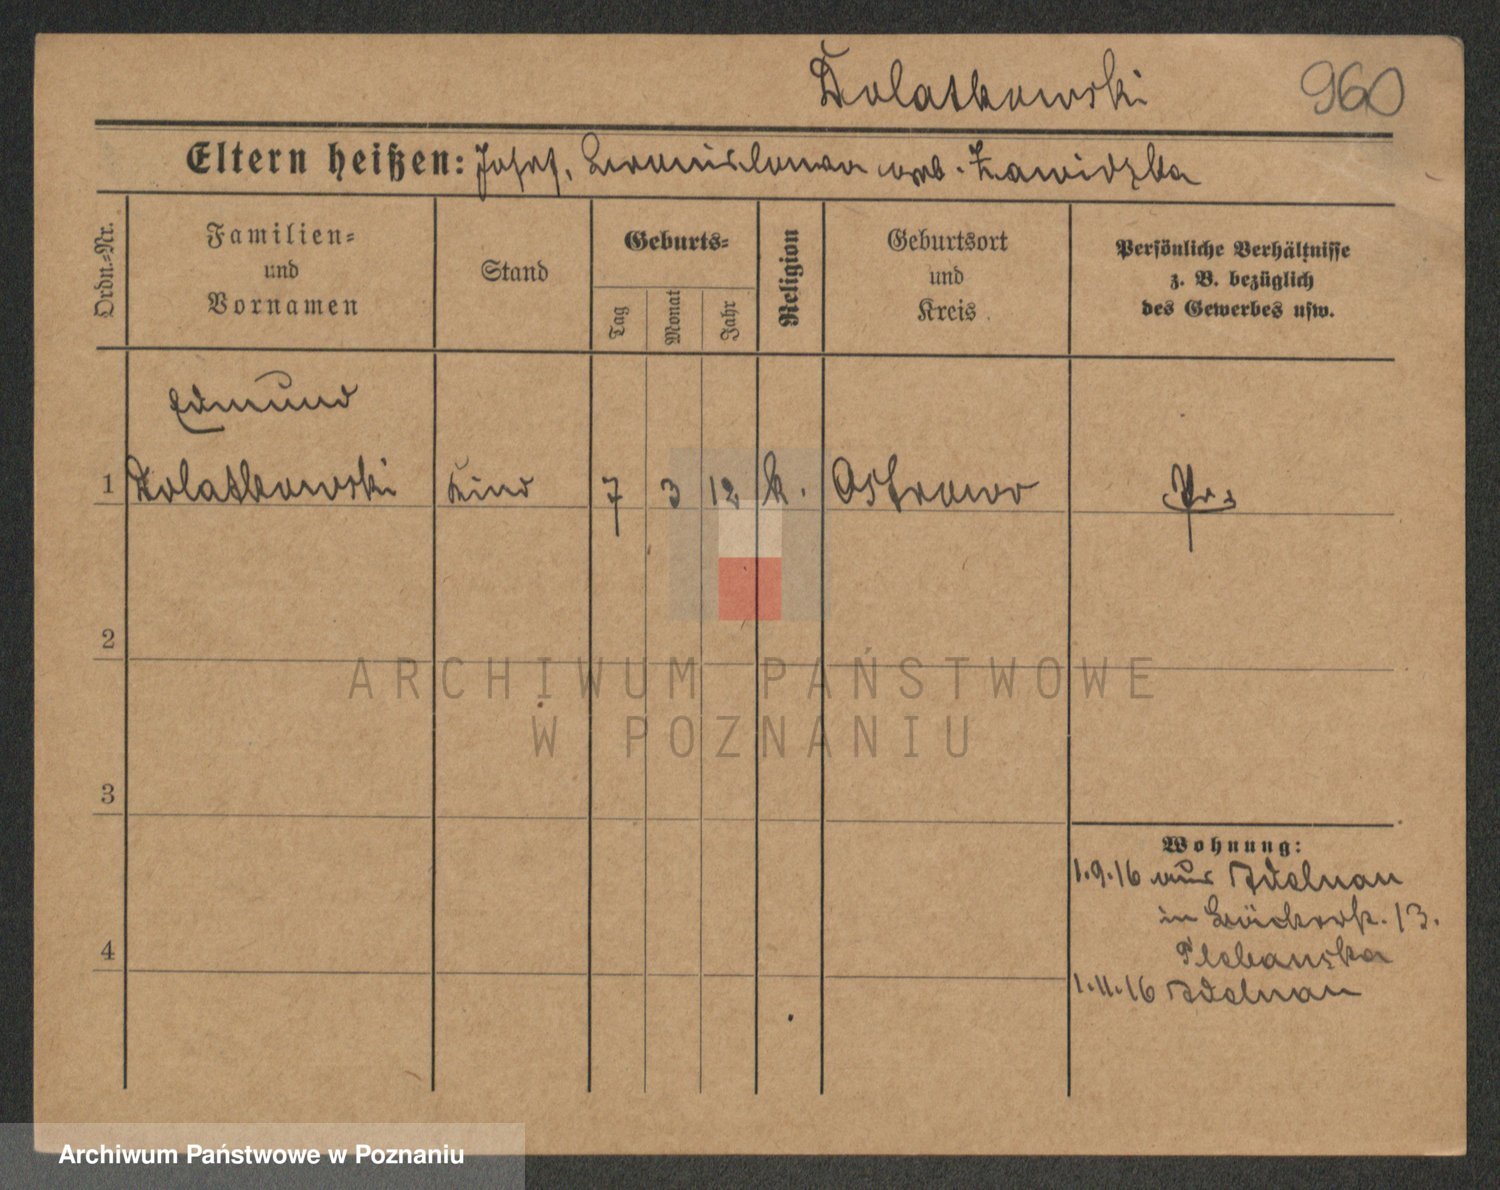 Dolatkowski 960
Eltern heißen: Josef, Bronislawa geb. Zawidzka
Ordn.-Nr.
Familien-
und
Vornamen
Stand
Geburts-
Tag
Monat
Jahr
Religion
Geburtsort
und
Kreis
Persönliche Verhältnisse
z. B. bezüglich
des Gewerbes usw.
Edmund
1 Dolatkowski Kind 7 3 12 k. Ostrowo Pr.
2
3
4
Wohnung:
1.9.16 aus Adelnau
in Bäckerstr. 13.
Plebanska
1.11.16 Adelnau
ARCHIWUM PAŃSTWOWE
W POZNANIU
Archiwum Państwowe w Poznaniu